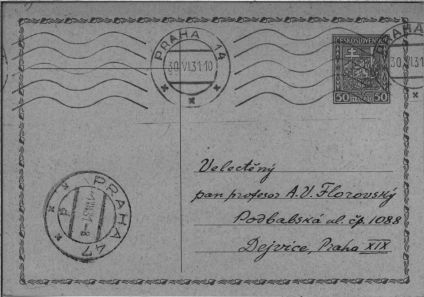 PRAHA 14
30.VI.31.10
PRAHA
30.VI.31
ČESKOSLOVENSKO
50 50
Velectěný
pan profesor A.V. Florovský
Podbabská ul. čp. 1088
Dejvice, Praha XIX
PRAHA 47